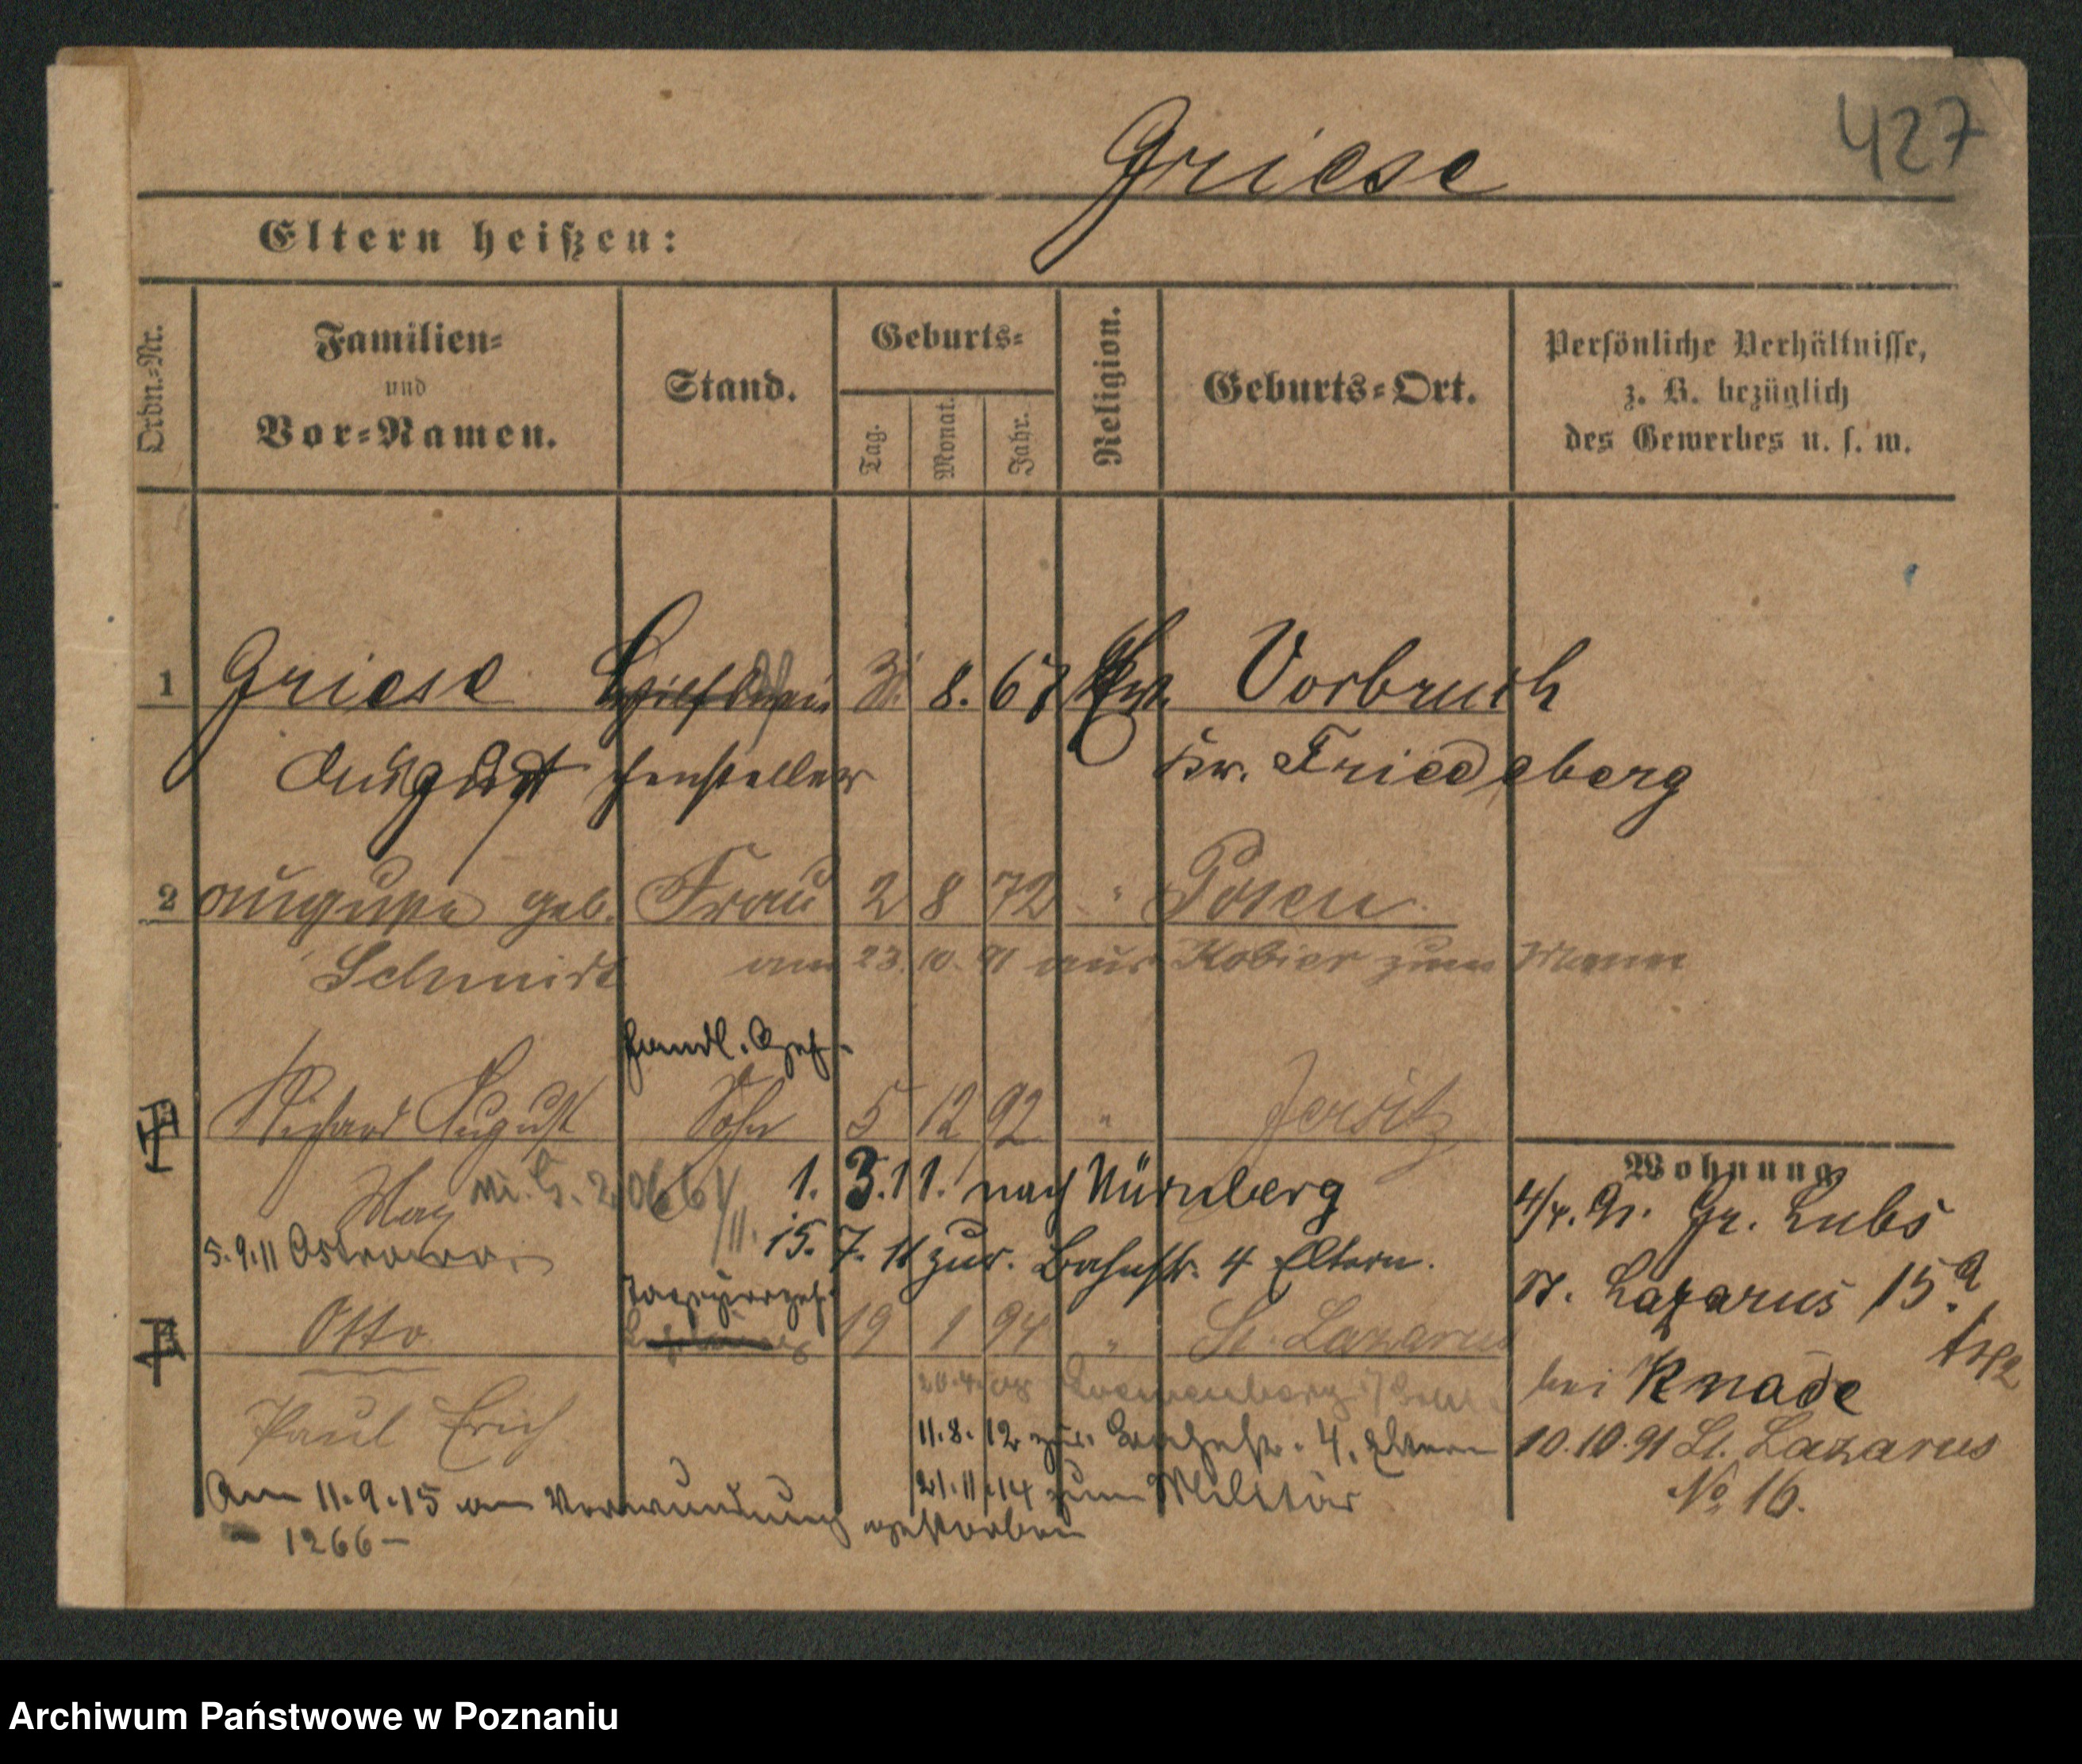 427
Griese
Eltern heißen:
Ordn.=Nr.
Familien=
und
Vor=Namen.
Stand.
Geburts=
Tag.
Monat.
Jahr.
Religion.
Geburts=Ort.
Persönliche Verhältnisse,
z. B. bezüglich
des Gewerbes u. s. w.
1 Griese 8. 67 Vorbruch
August Kr. Friedeberg
2 Auguste geb. Frau 2 8 72 " Posen
Schmidt am 23. 10. 91 aus Kobier zum Mann
Handl. Geh.
Richard August Sohn 5 12 92 " Jersitz
Max 1. 3. 11. nach Nürnberg
5. 9. 11 Ostrowo 15. 7. 11 zur. Bahnstr. 4 Eltern.
Otto 19 1 94 " St. Lazarus
Paul Erich
11. 8. 12 zur. 4. Eltern
21. 11. 14 zum Militär
Am 11. 9. 15 an Verwundung gestorben
- 1266 -
Wohnung
Gr. Lubs
St. Lazarus 15a
bei Knade
10. 10. 91 St. Lazarus
No 16.
Archiwum Państwowe w Poznaniu